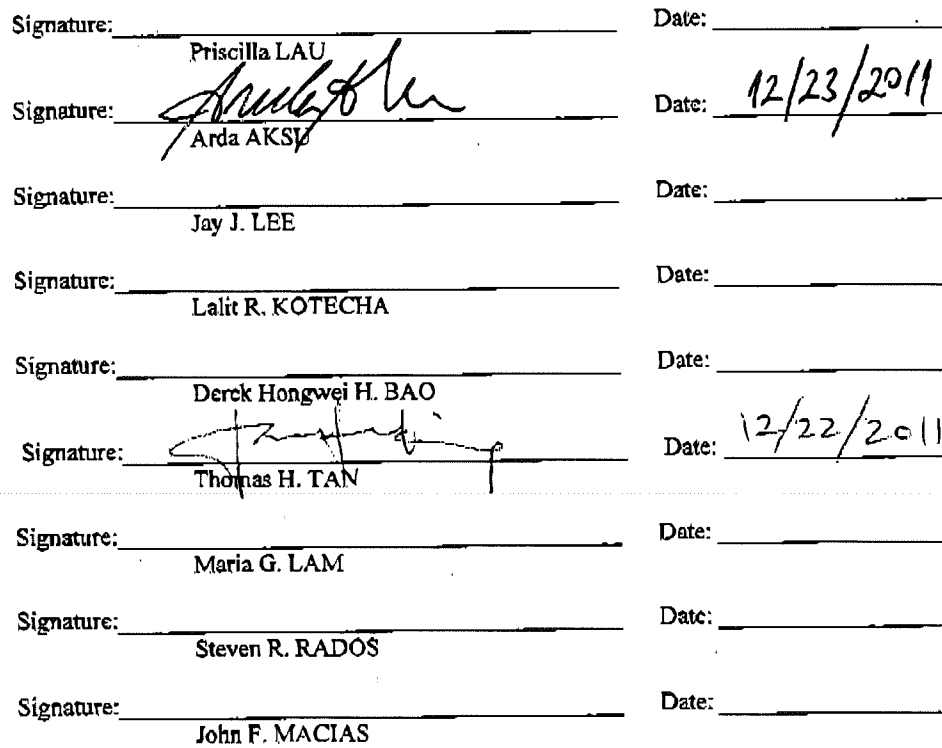 Signature: Date:
Priscilla LAU
Signature: Date: 12/23/2011
Arda AKSU
Signature: Date:
Jay J. LEE
Signature: Date:
Lalit R. KOTECHA
Signature: Date:
Derek Hongwei H. BAO
Signature: Date: 12/22/2011
Thomas H. TAN
Signature: Date:
Maria G. LAM
Signature: Date:
Steven R. RADOS
Signature: Date:
John F. MACIAS